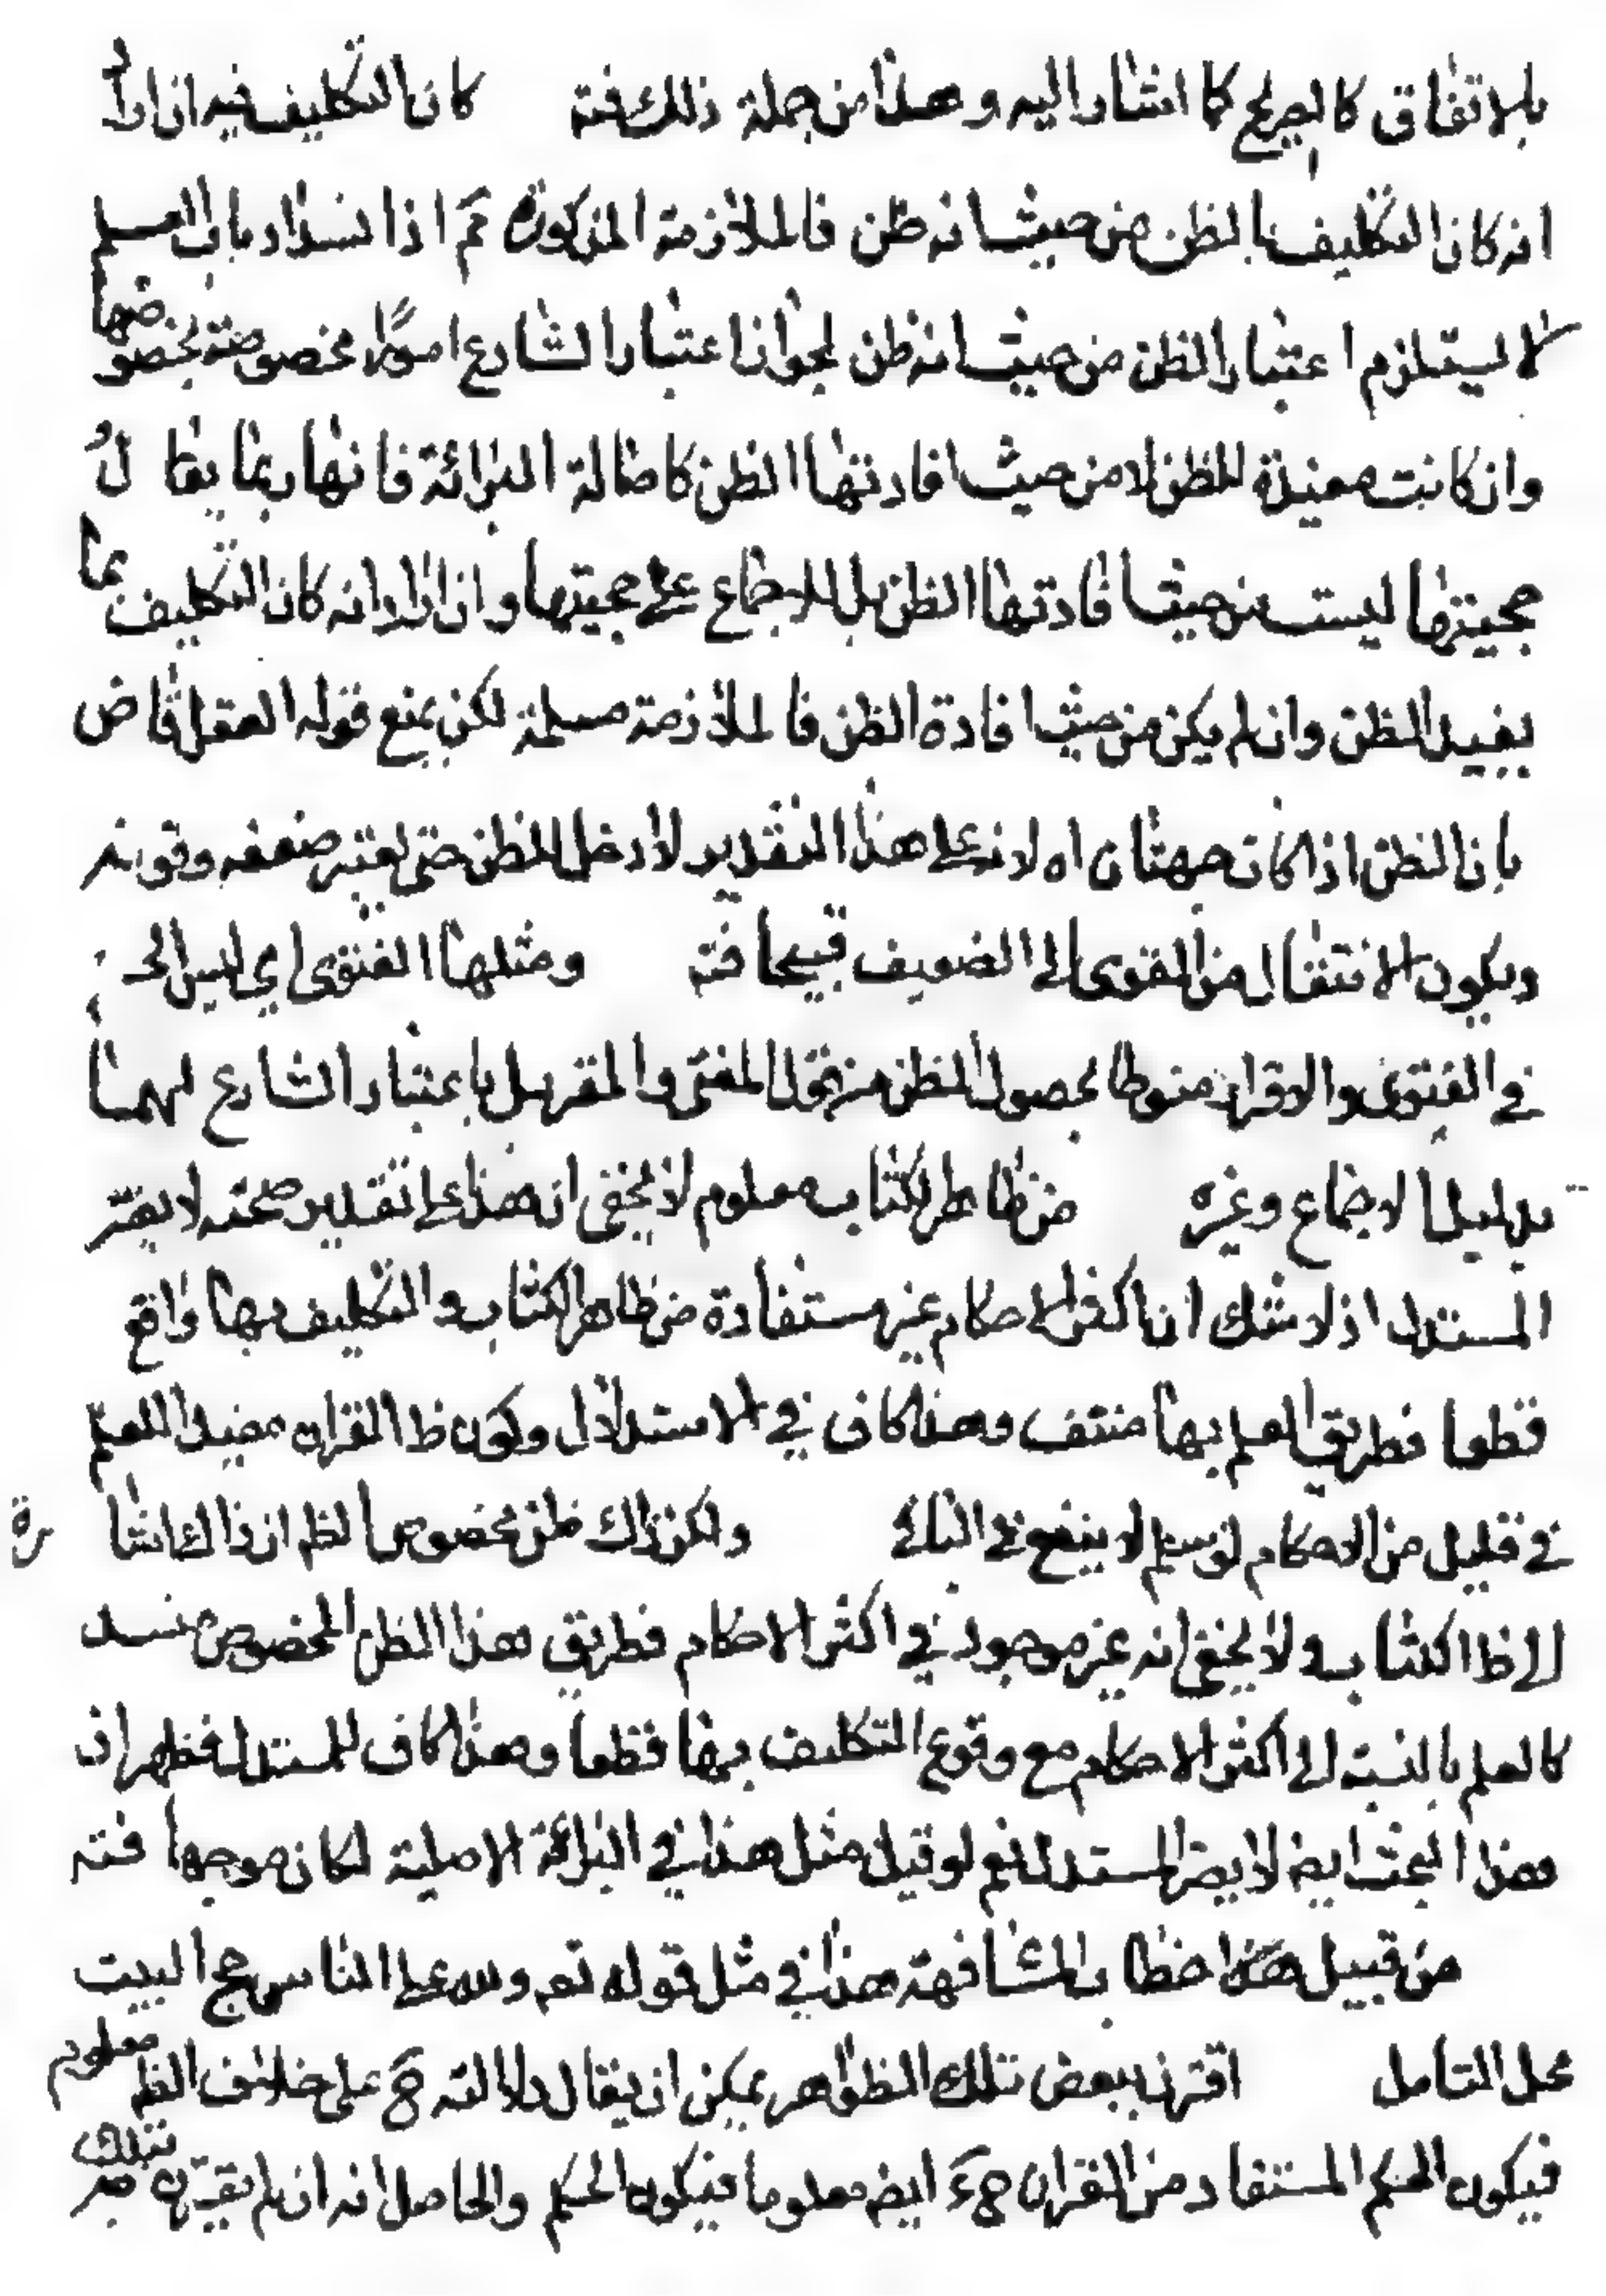 بالاتفاق كالصريح كما اشار اليه وهذا من جملة ذلك فته كان التكليف فيه ان اراد
انه كان التكليف بالظن من حيث انه ظن فالملازمة المذكورة مم اذ انسداد باب العلم
لا يستلزم اعتبار الظن من حيث انه ظن لجواز اعتبار الشارع امورا مخصوصة بخصوصها
وان كانت مفيدة للظن لا من حيث افادتها الظن كاصالة البرائة فانها ربما يقال
حجيتها ليست من حيث افادتها الظن بل للاجماع على حجيتها وان اراد انه كان التكليف بما
يفيد الظن وان لم يكن من حيث افادة الظن فالملازمة مسلمة لكن يمنع قوله العقل قاض
بان الظن اذا كان جهتان اه لانه على هذا التقدير لا دخل للظن حتى يعتبر ضعفه وقوته
ويكون الانتقال من القوى الى الضعيف قبيحا فته ومثلها الفتوى اي ليس الحكم
في الفتوى والاقرار منوطا بحصول الظن من قول المفتى والمقر بل باعتبار الشارع لهما
بدليل الاجماع وغيره من ظاهر الكتاب معلوم لا يخفى ان هذا على تقدير صحته لا يضر
المستدل اذ لا شك ان اكثر الاحكام غير مستفادة من ظاهر الكتاب والتكليف بها واقع
قطعا فطريق العلم بها منتف وهذا كاف في الاستدلال وكون ظ القران مفيدا للعلم
في قليل من الاحكام لو سلم لا ينفع في الباقي ولكن ذاك ظن مخصوص الظ ان ذاك اشارة
الى ظ الكتاب ولا يخفى انه غير موجود في اكثر الاحكام فطريق هذا الظن المخصوص منسد
كالعلم بالنسبة الى اكثر الاحكام مع وقوع التكليف بها قطعا وهذا كاف للمستدل فظهر ان
هذا البحث ايض لا يضر المستدل نعم لو قيل مثل هذا في البرائة الاصلية لكان موجها فته
من قبيل هذا خطاب المشافهة هذا في مثل قوله تع ولله على الناس حج البيت
محل التامل اقترن ببعض تلك الظواهر يمكن ان يقال دلالته ح على خلاف الظ معلوم
فيكون الحكم المستفاد من القران ح ايض معلوما فيكون الحكم والحاصل انه ان لم يقترن بتلك